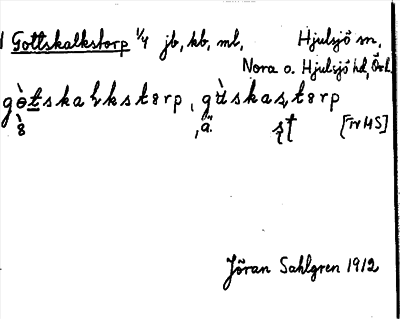 1 Gottskalkstorp 1/4 jb, kb, ml, Hjulsjö sn,
Nora o. Hjulsjö hd, Ör.l.
gòtskaɫkstɵrp, gùskaʂtɵrp
[Tr MS]
Jöran Sahlgren 1912